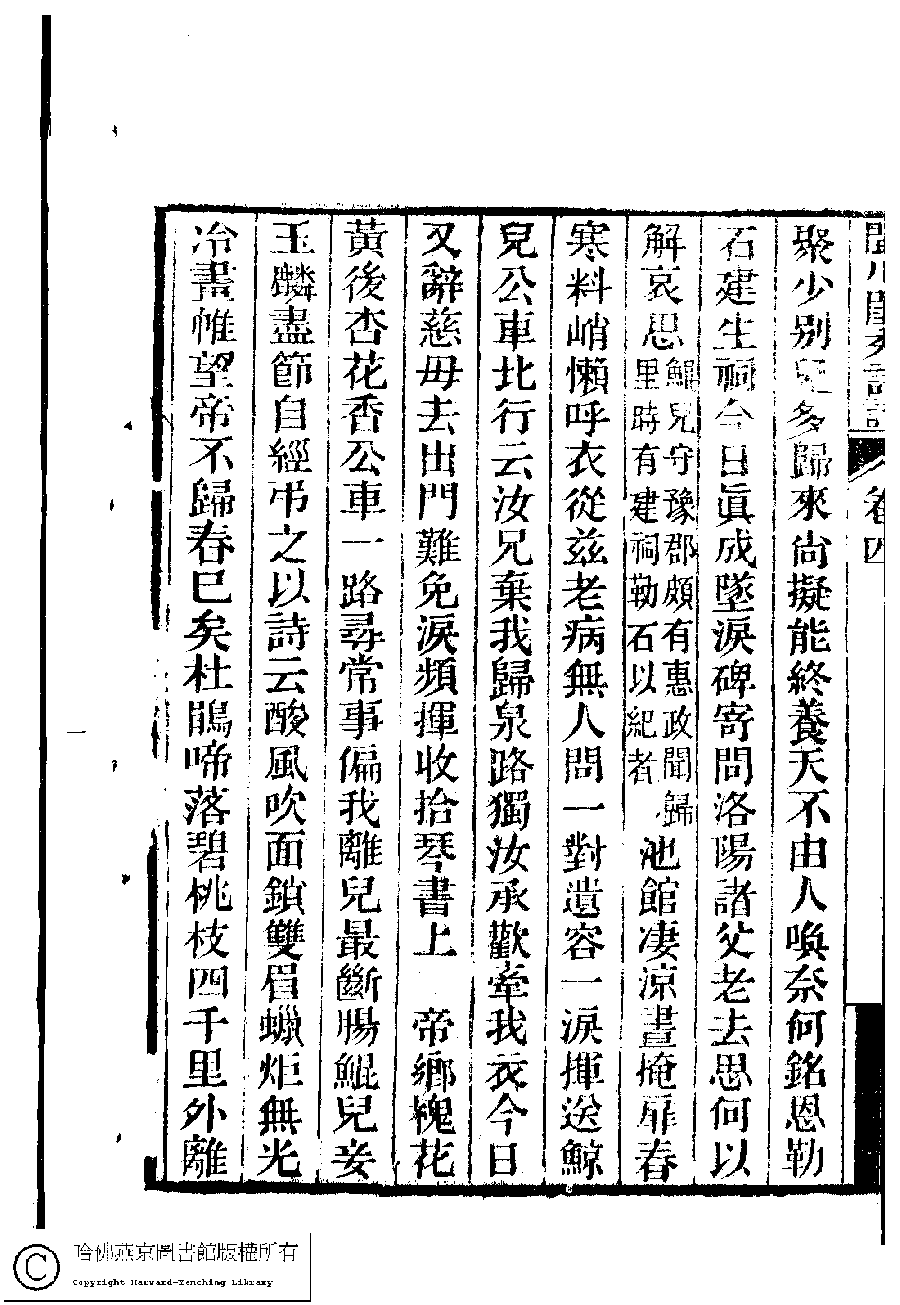 聞川閨秀詩話 卷四
聚少別兒多歸來尙擬能終養天不由人喚奈何銘恩勒
石建生祠今日眞成墜淚碑寄問洛陽諸父老去思何以
解哀思鯤兒守豫郡頗有惠政聞歸里時有建祠勒石以紀者池館凄涼晝掩扉春
寒料峭懶呼衣從兹老病無人問一對遺容一淚揮送鯨
兒公車北行云汝兄棄我歸泉路獨汝承歡牽我衣今日
又辭慈毋去出門難免淚頻揮收拾琴書上 帝鄉槐花
黃後杏花香公車一路尋常事偏我離兒最斷腸鯤兒妾
玉麟盡節自經弔之以詩云酸風吹面鎖雙眉蠟炬無光
冷畫帷望帝不歸春已矣杜鵑啼落碧桃枝四千里外離
哈佛燕京圖書館版權所有
Copyright Harvard-Yenching Library